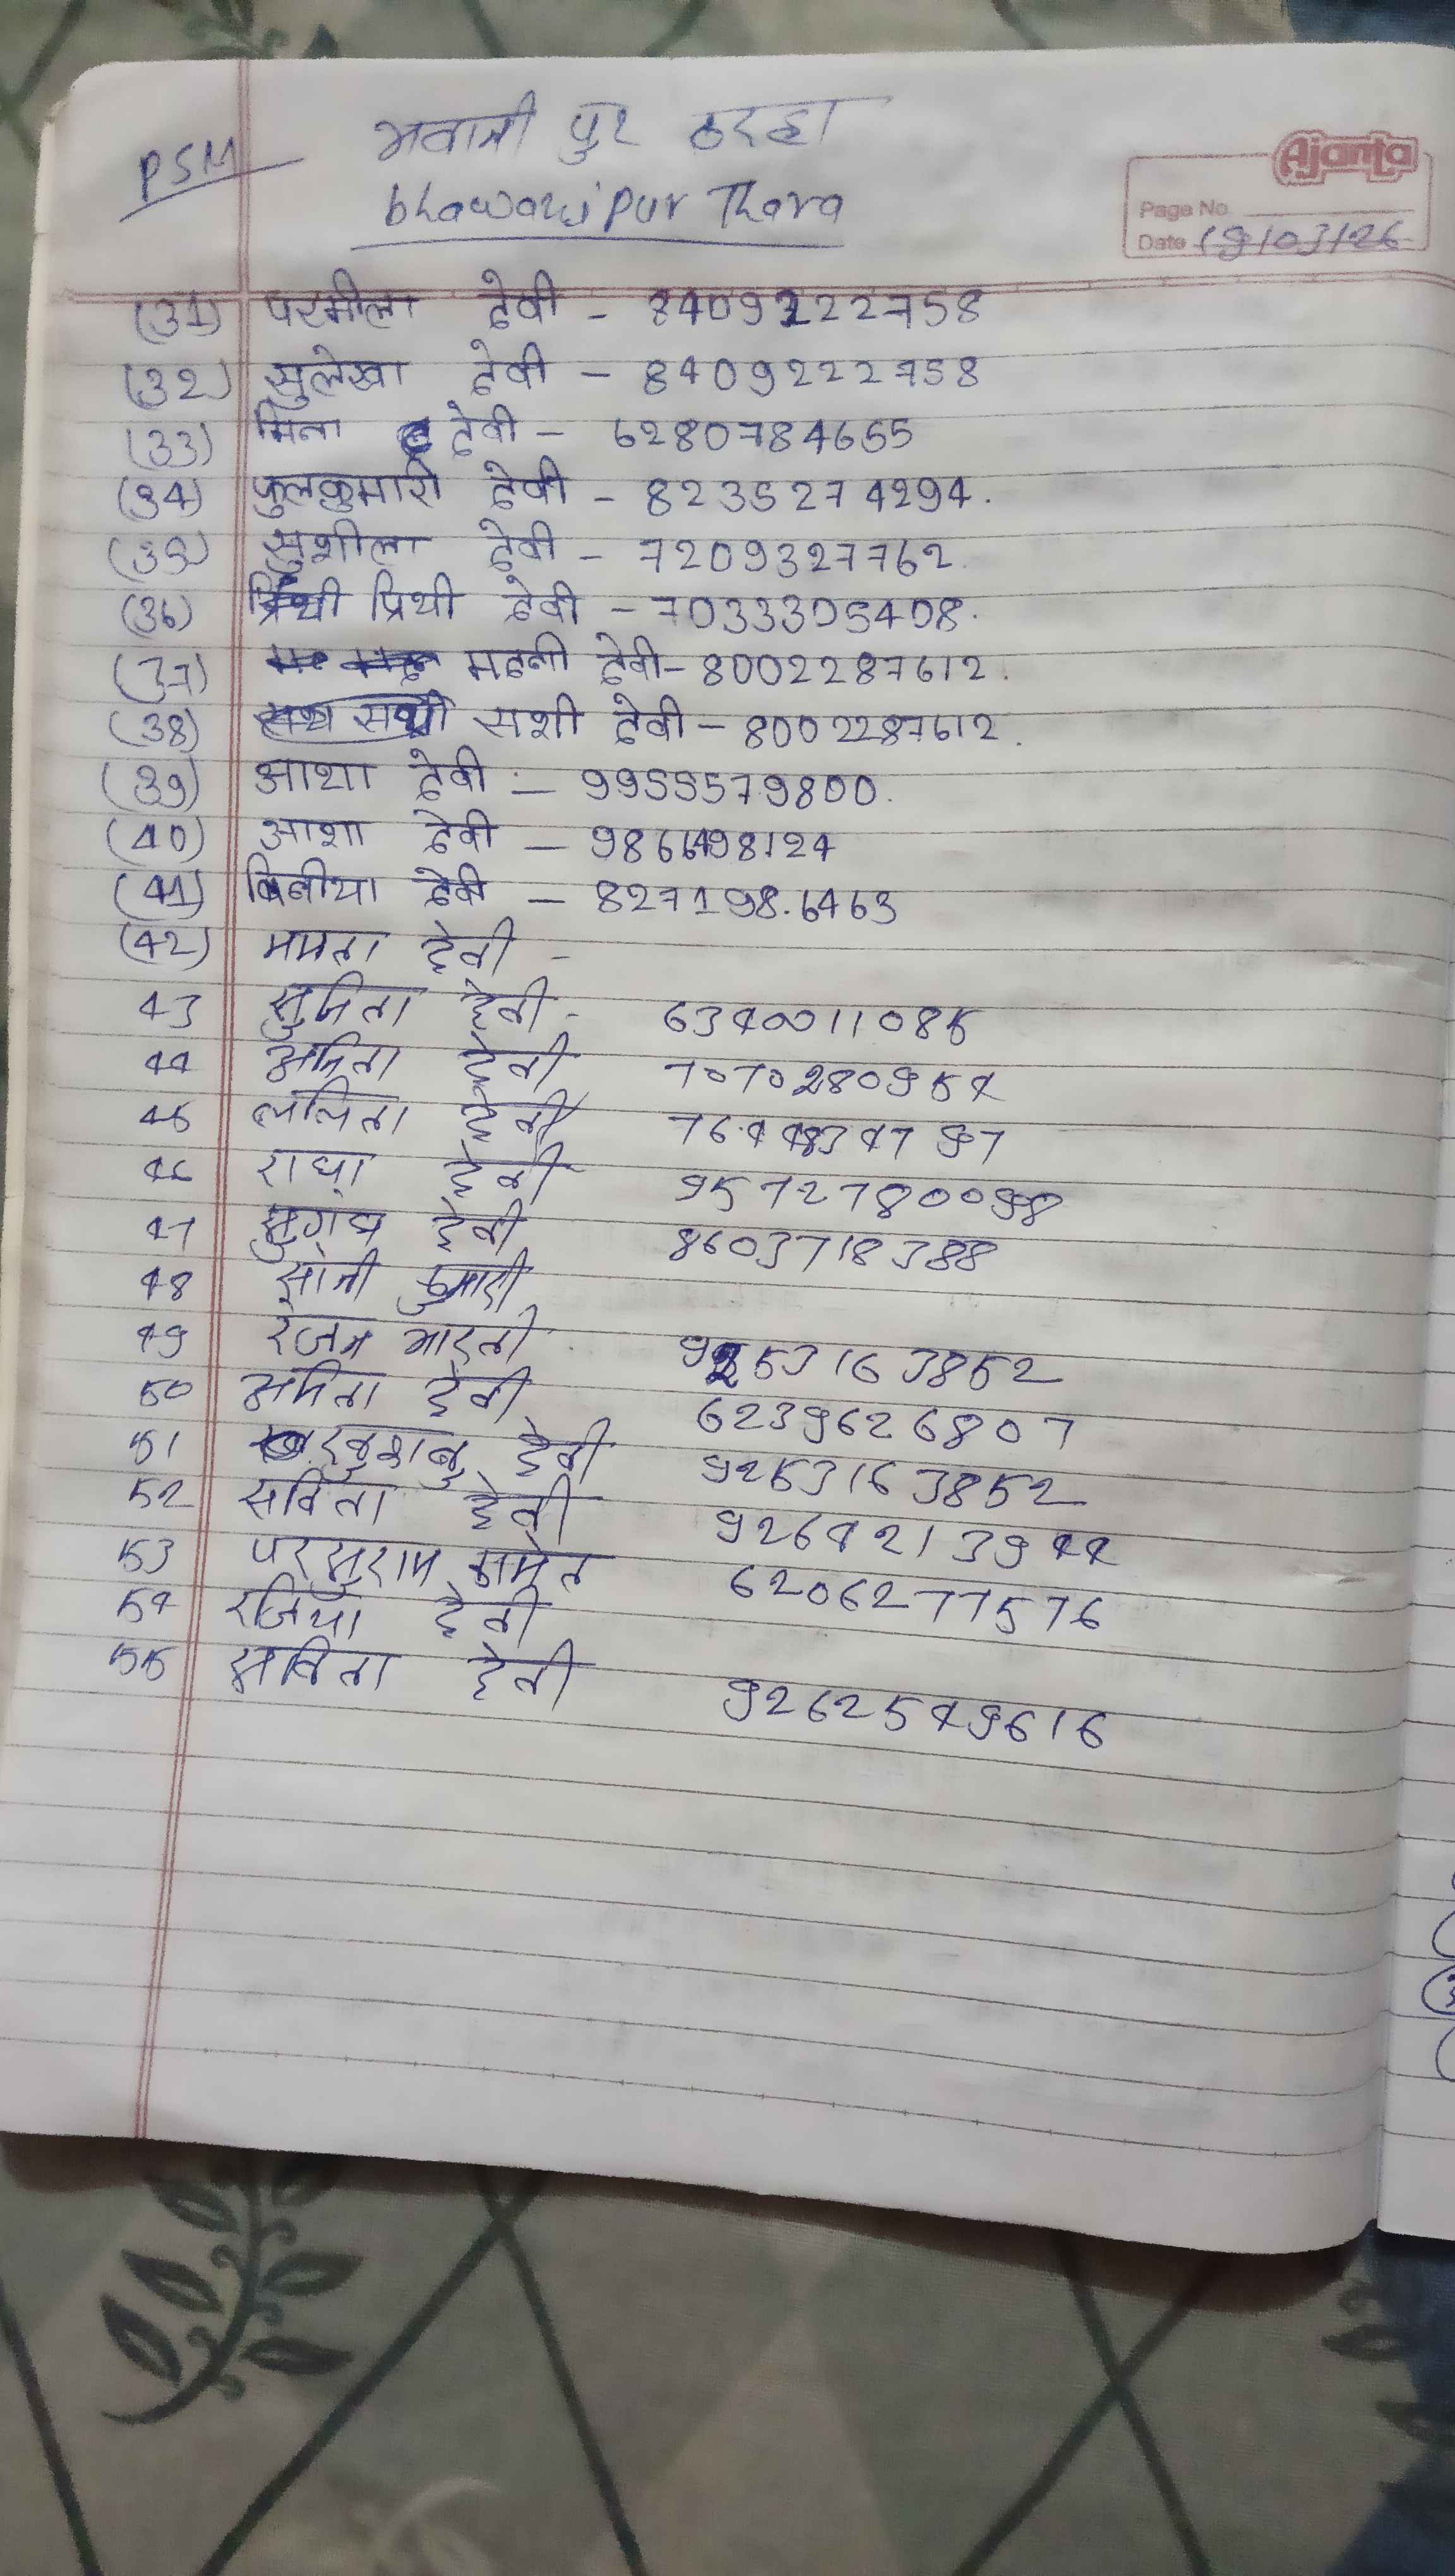 PSM
भवानी पुर ठरहा
bhawanipur Thara
Ajanta
Page No
Date 19/03/26
(31) परमीला देवी - 8409222758
(32) सुलेखा देवी - 8409222758
(33) मिना देवी - 6280784655
(34) फुलकुमारी देवी - 8235274294.
(35) सुशीला देवी - 7209327762.
(36) प्रियी देवी - 7033305408.
(37) मदनी देवी - 8002287612.
(38) सशी देवी - 8002287612.
(39) आशा देवी - 9955579800.
(40) आशा देवी - 9866498124
(41) बिनीया देवी - 827198.6463
(42) ममता देवी -
43 सुमिता देवी - 6340011085
44 अमिता देवी 7070280954
45 ललिता देवी 7644834797
46 राधा देवी 9572780098
47 देवी 8603718388
48 सोनी कुमारी
49 रंजन भारती 9253163852
50 अमिता देवी 6239626807
51 देवी 9253163852
52 सविता देवी 9264213944
53 परसुराम 6206277576
54 रजिया देवी
55 सबिता देवी 9262549616